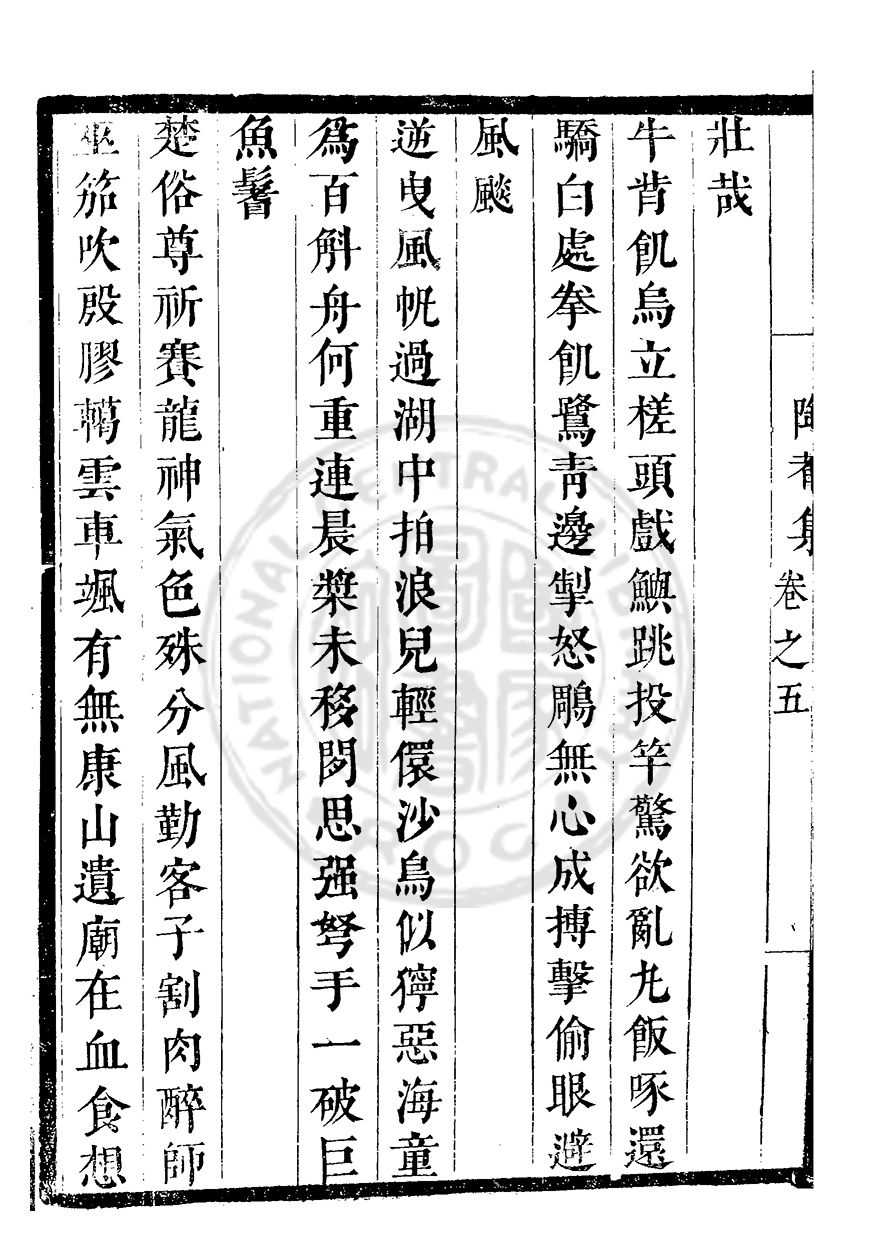 陶者集卷之五
壯哉
牛背飢烏立槎頭戲鱮跳投竿驚欲亂丸飯啄還
驕白處拳飢鷺青邊掣怒鵰無心成搏擊偷眼避
風颷
逆曳風帆過湖中拍浪兒輕儇沙鳥似獰惡海童
爲百斛舟何重連晨槳未移閔思强弩手一破巨
魚鬐
楚俗尊祈賽龍神氣色殊分風勤客子割肉醉師
巫笳吹殷膠轕雲車颯有無康山遺廟在血食想
NATIONAL CENTRAL LIBRARY
R.O.C.